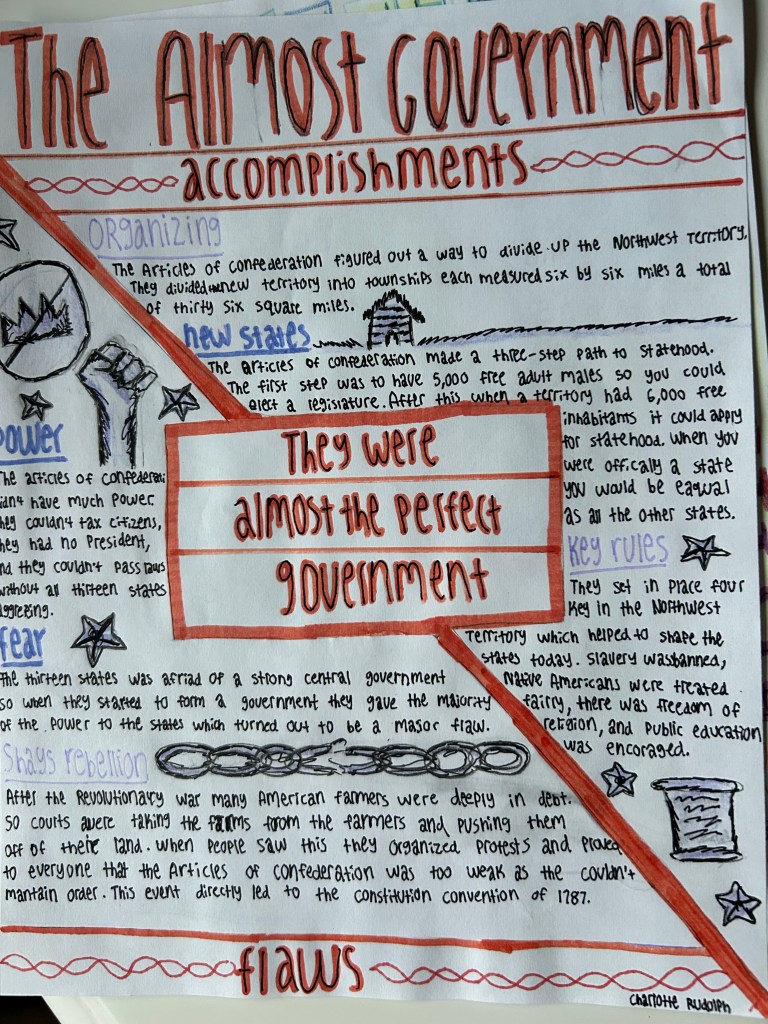 The Almost Government
accomplishments
Organizing
The Articles of confederation figured out a way to divide up the Northwest Territory.
They divided the new territory into townships each measured six by six miles a total
of thirty six square miles.
new states
The articles of confederation made a three-step path to statehood.
The first step was to have 5,000 free adult males so you could
elect a legislature. After this when a territory had 6,000 free
inhabitants it could apply
for statehood. When you
were offically a state
you would be eaqual
as all the other states.
Key rules
They set in place four
Key in the Northwest
Territory which helped to shape the
states today. Slavery was banned,
Native Americans were treated
fairly, there was freedom of
religion, and public education
was encoraged.
They were
almost the perfect
government
power
The articles of confederati
idn't have much power.
hey couldn't tax citizens,
hey had no President,
nd they couldn't pass laws
without all thirteen states
aggreeing.
fear
The thirteen states was afriad of a strong central government
so when they started to form a government they gave the majority
of the power to the states which turned out to be a masor flaw.
Shays rebellion
After the Revolutionary war many American farmers were deeply in debt.
So courts were taking the farms from the farmers and pushing them
off of their land. When people saw this they organized protests and proved
to everyone that the Articles of confederation was too weak as the couldn't
mantain order. This event directly led to the constitution convention of 1787.
flaws
Charlotte Rudolph